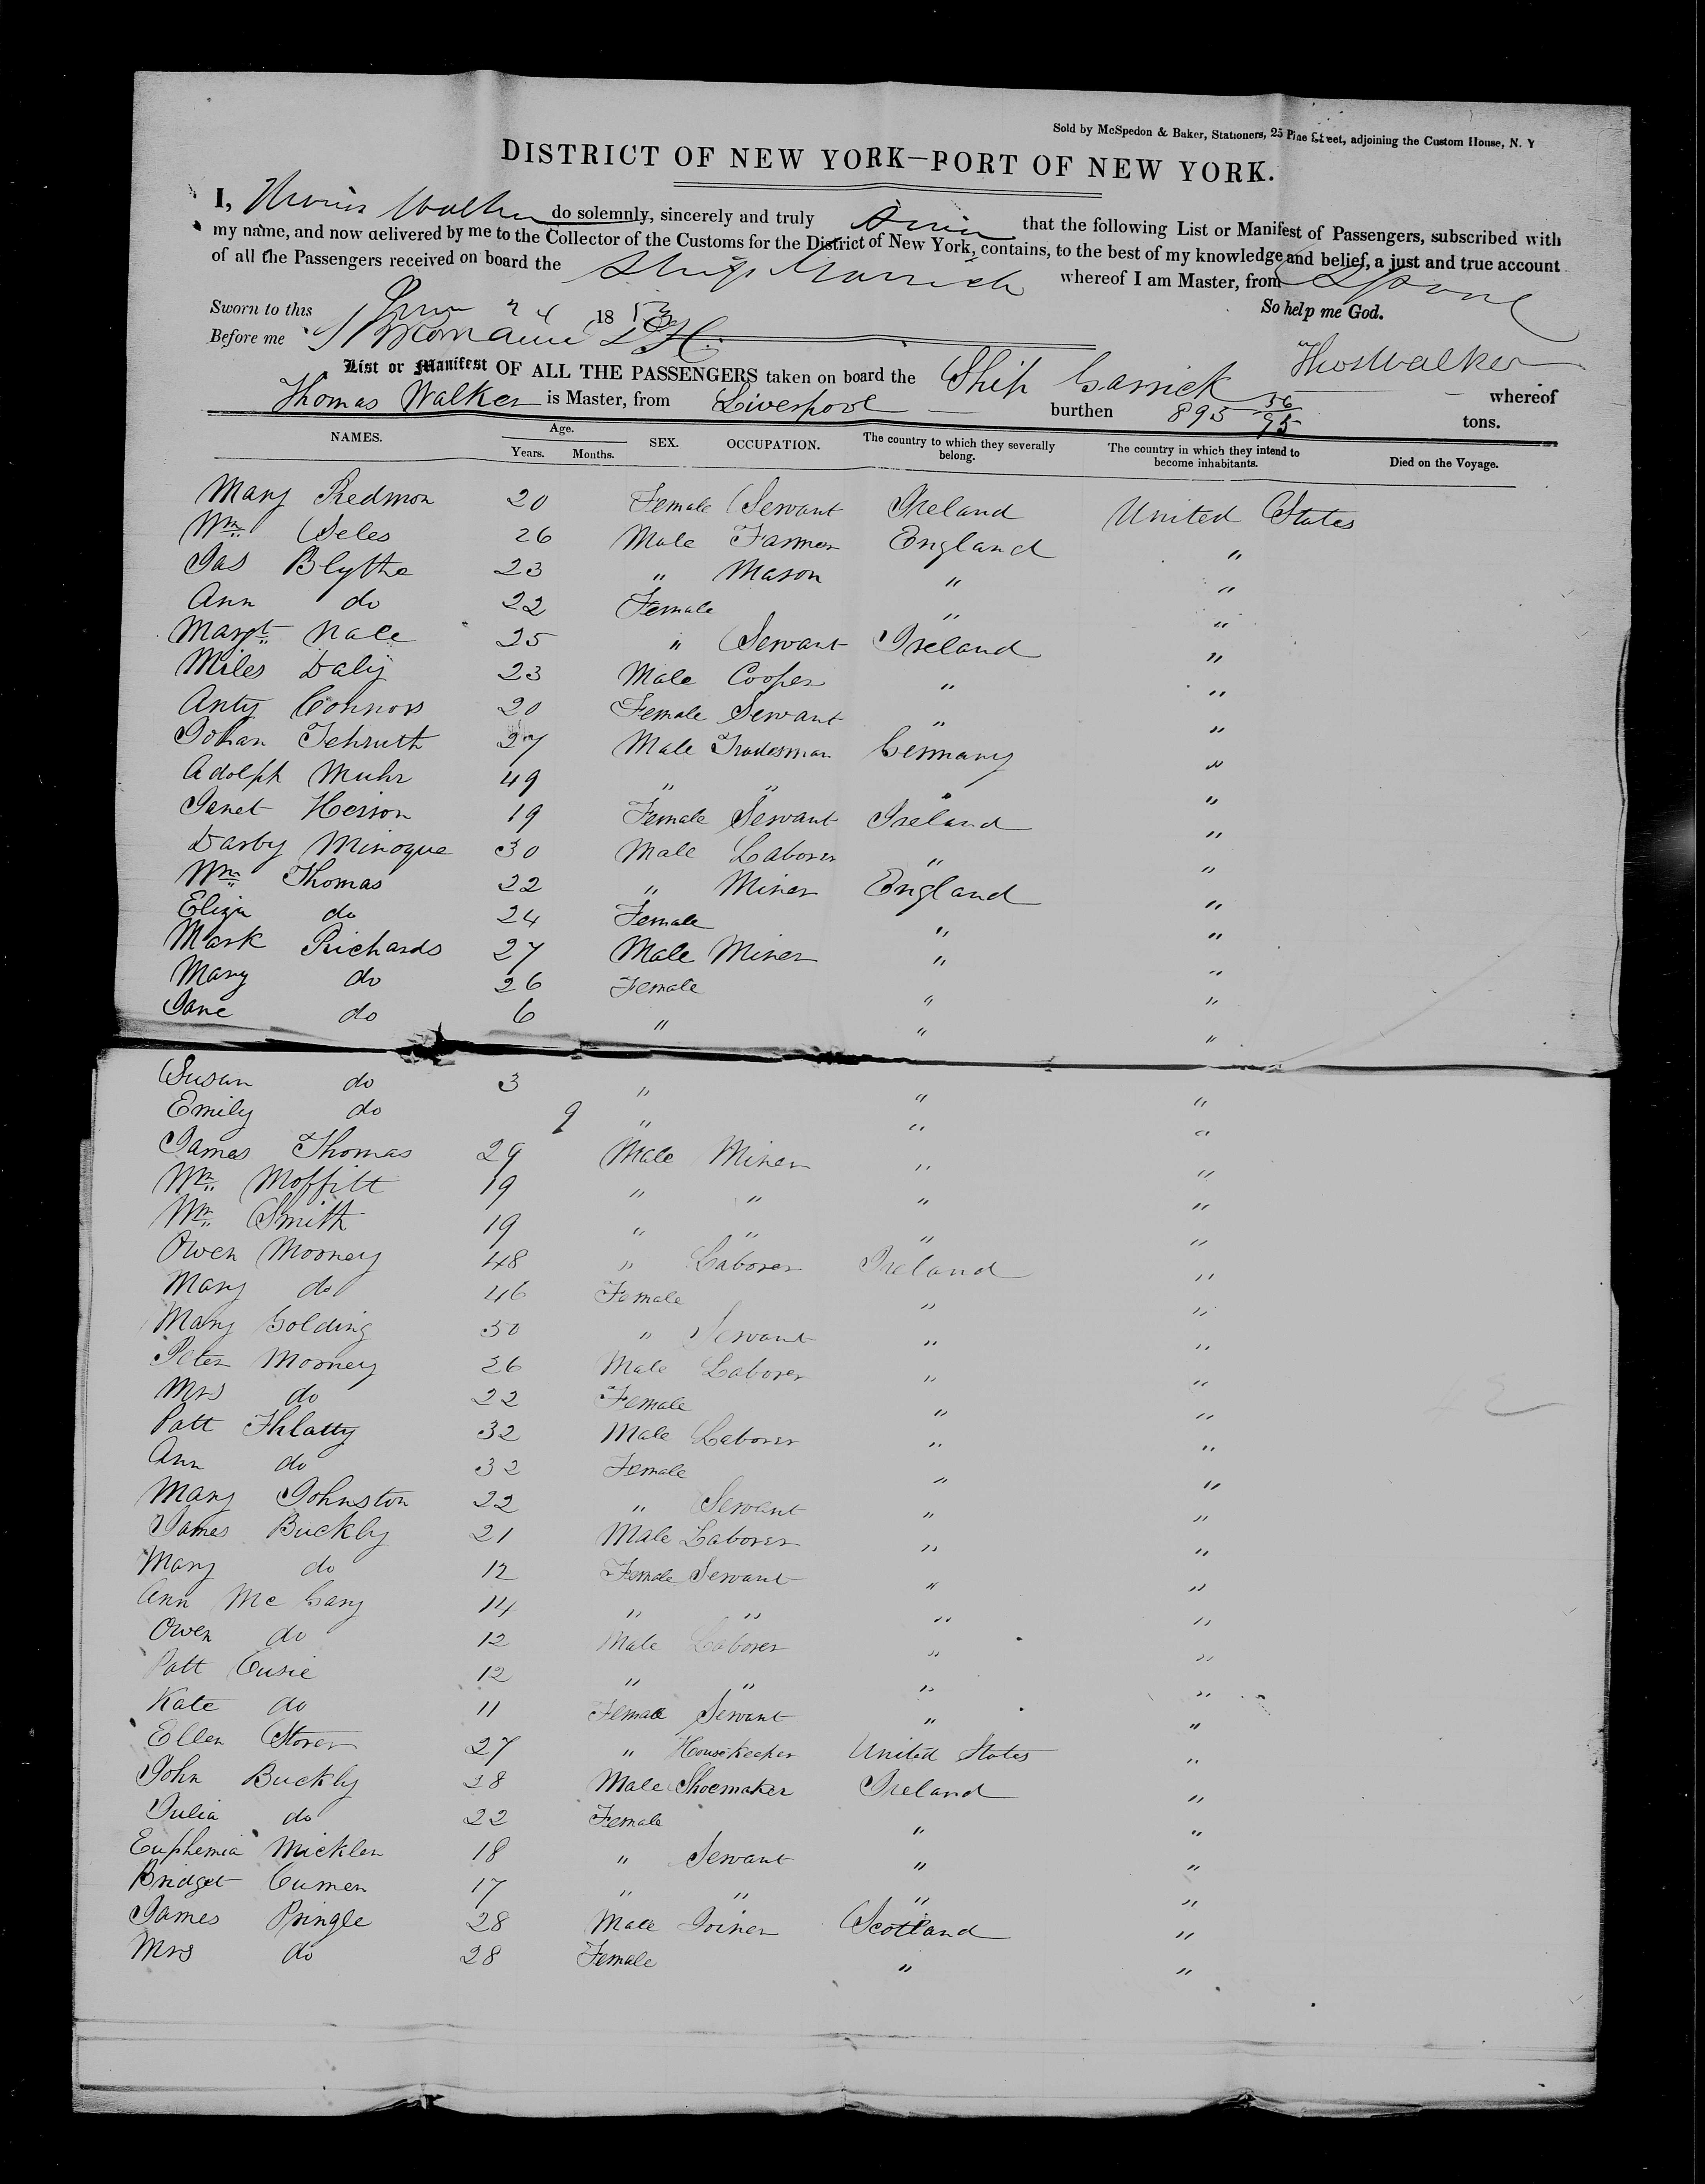 Sold by McSpedon & Baker, Stationers, 25 Pine Street, adjoining the Custom House, N. Y
DISTRICT OF NEW YORK—PORT OF NEW YORK.
I, Thomas Walker do solemnly, sincerely and truly that the following List or Manifest of Passengers, subscribed with
my name, and now delivered by me to the Collector of the Customs for the District of New York, contains, to the best of my knowledge and belief, a just and true account
of all the Passengers received on board the Ship Garrick whereof I am Master, from Lpool
Sworn to this June 24 1853 So help me God.
Before me
Thos Walker
List or Manifest OF ALL THE PASSENGERS taken on board the Ship Garrick whereof
Thomas Walker is Master, from Liverpool burthen 895 36/95 tons.
NAMES. Age. Years. Months. SEX. OCCUPATION. The country to which they severally belong. The country in which they intend to become inhabitants. Died on the Voyage.
Mary Redmon 20 Female Servant Ireland United States
Wm Seles 26 Male Farmer England "
Jas Blythe 23 " Mason " "
Ann do 22 Female " "
Margt Nale 25 " Servant Ireland "
Miles Daly 23 Male Cooper " "
Anty Connors 20 Female Servant " "
Johan Tehruth 27 Male Tradesman Germany "
Adolph Muhr 49 " " " "
Janet Herron 19 Female Servant Ireland "
Darby Minogue 30 Male Laborer " "
Wm Thomas 22 " Miner England "
Eliza do 24 Female " "
Mark Richards 27 Male Miner " "
Mary do 26 Female " "
Jane do 6 " " "
Susan do 3 " " "
Emily do 9 " " "
James Thomas 29 Male Miner " "
Wm Moffitt 19 " " " "
Wm Smith 19 " " " "
Owen Mooney 48 " Laborer Ireland "
Mary do 46 Female " "
Mary Golding 30 " Servant " "
Peter Mooney 26 Male Laborer " "
Mrs do 22 Female " "
Patt Fhlatty 32 Male Laborer " "
Ann do 32 Female " "
Mary Johnston 22 " Servant " "
James Buckly 21 Male Laborer " "
Mary do 12 Female Servant " "
Ann Mc Gary 14 " " " "
Owen do 12 Male Laborer " "
Patt Cusie 12 " " " "
Kate do 11 Female Servant " "
Ellen Storer 27 " Housekeeper United States "
John Buckly 28 Male Shoemaker Ireland "
Julia do 22 Female " "
Euphemia Micklen 18 " Servant " "
Bridget Cumen 17 " " " "
James Pringle 28 Male Joiner Scotland "
Mrs do 28 Female " "